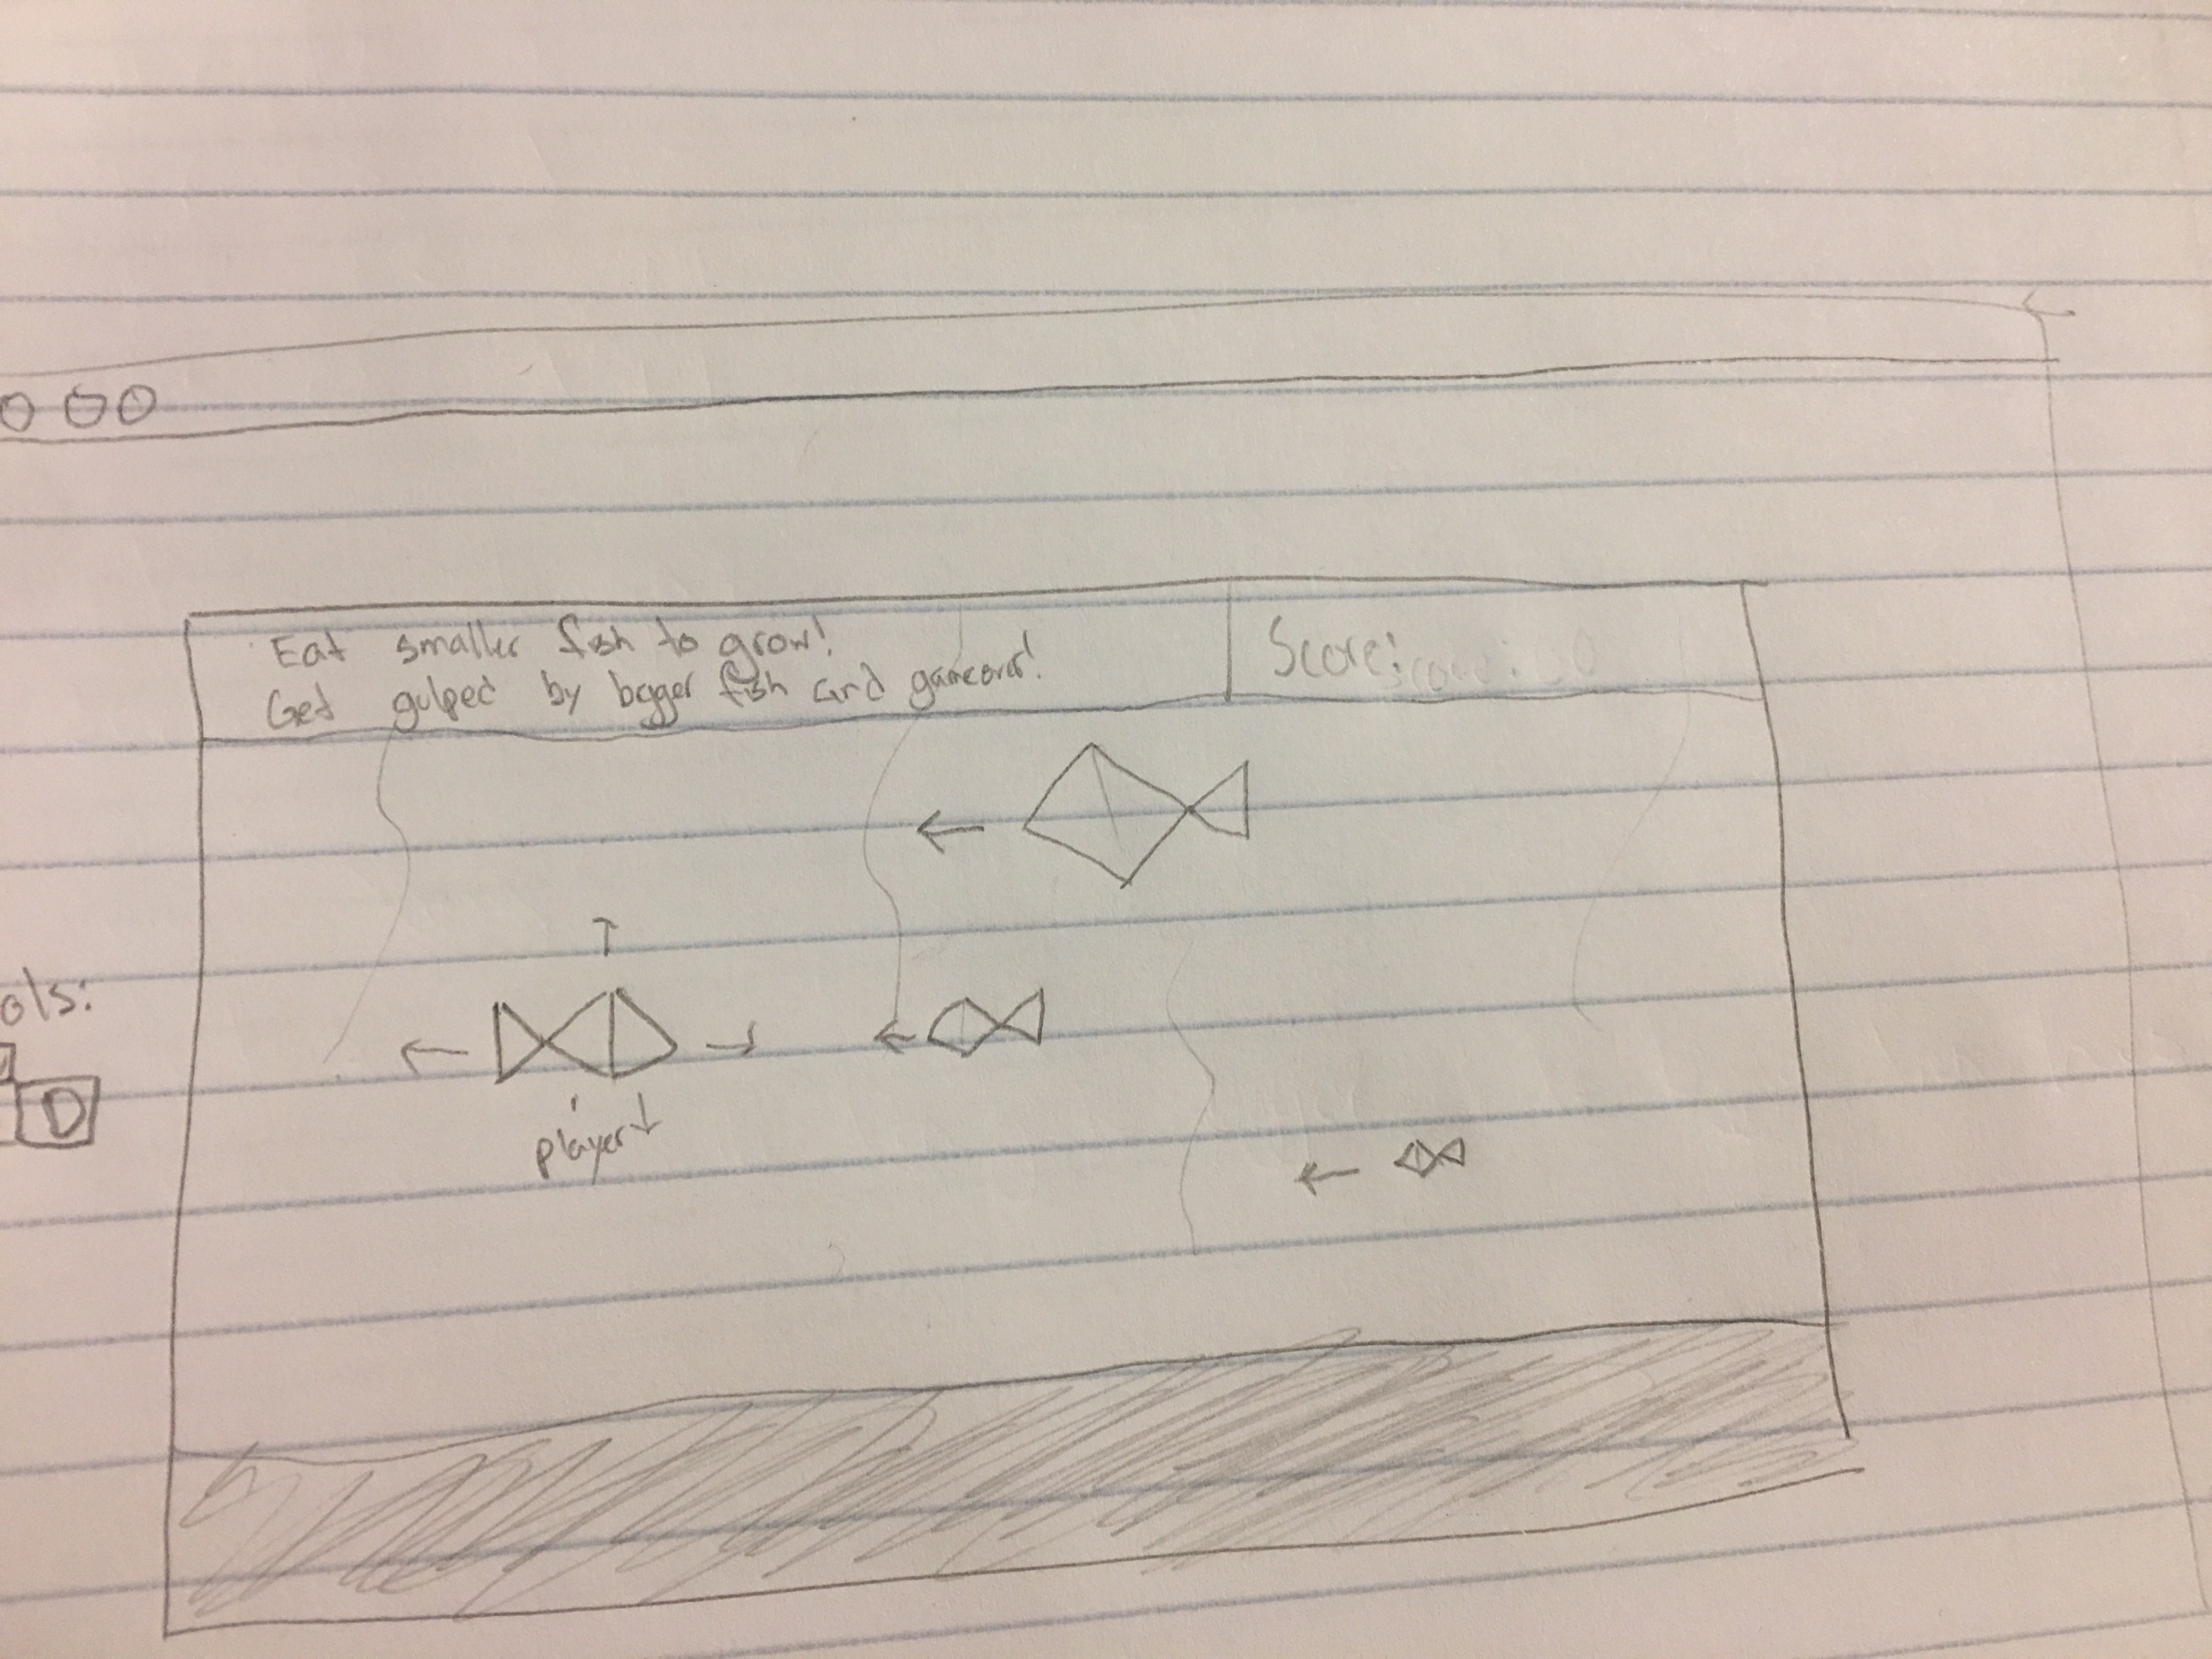 Eat smaller fish to grow!
Get gulped by bigger fish and gameover!
Score:
ols:
D
player